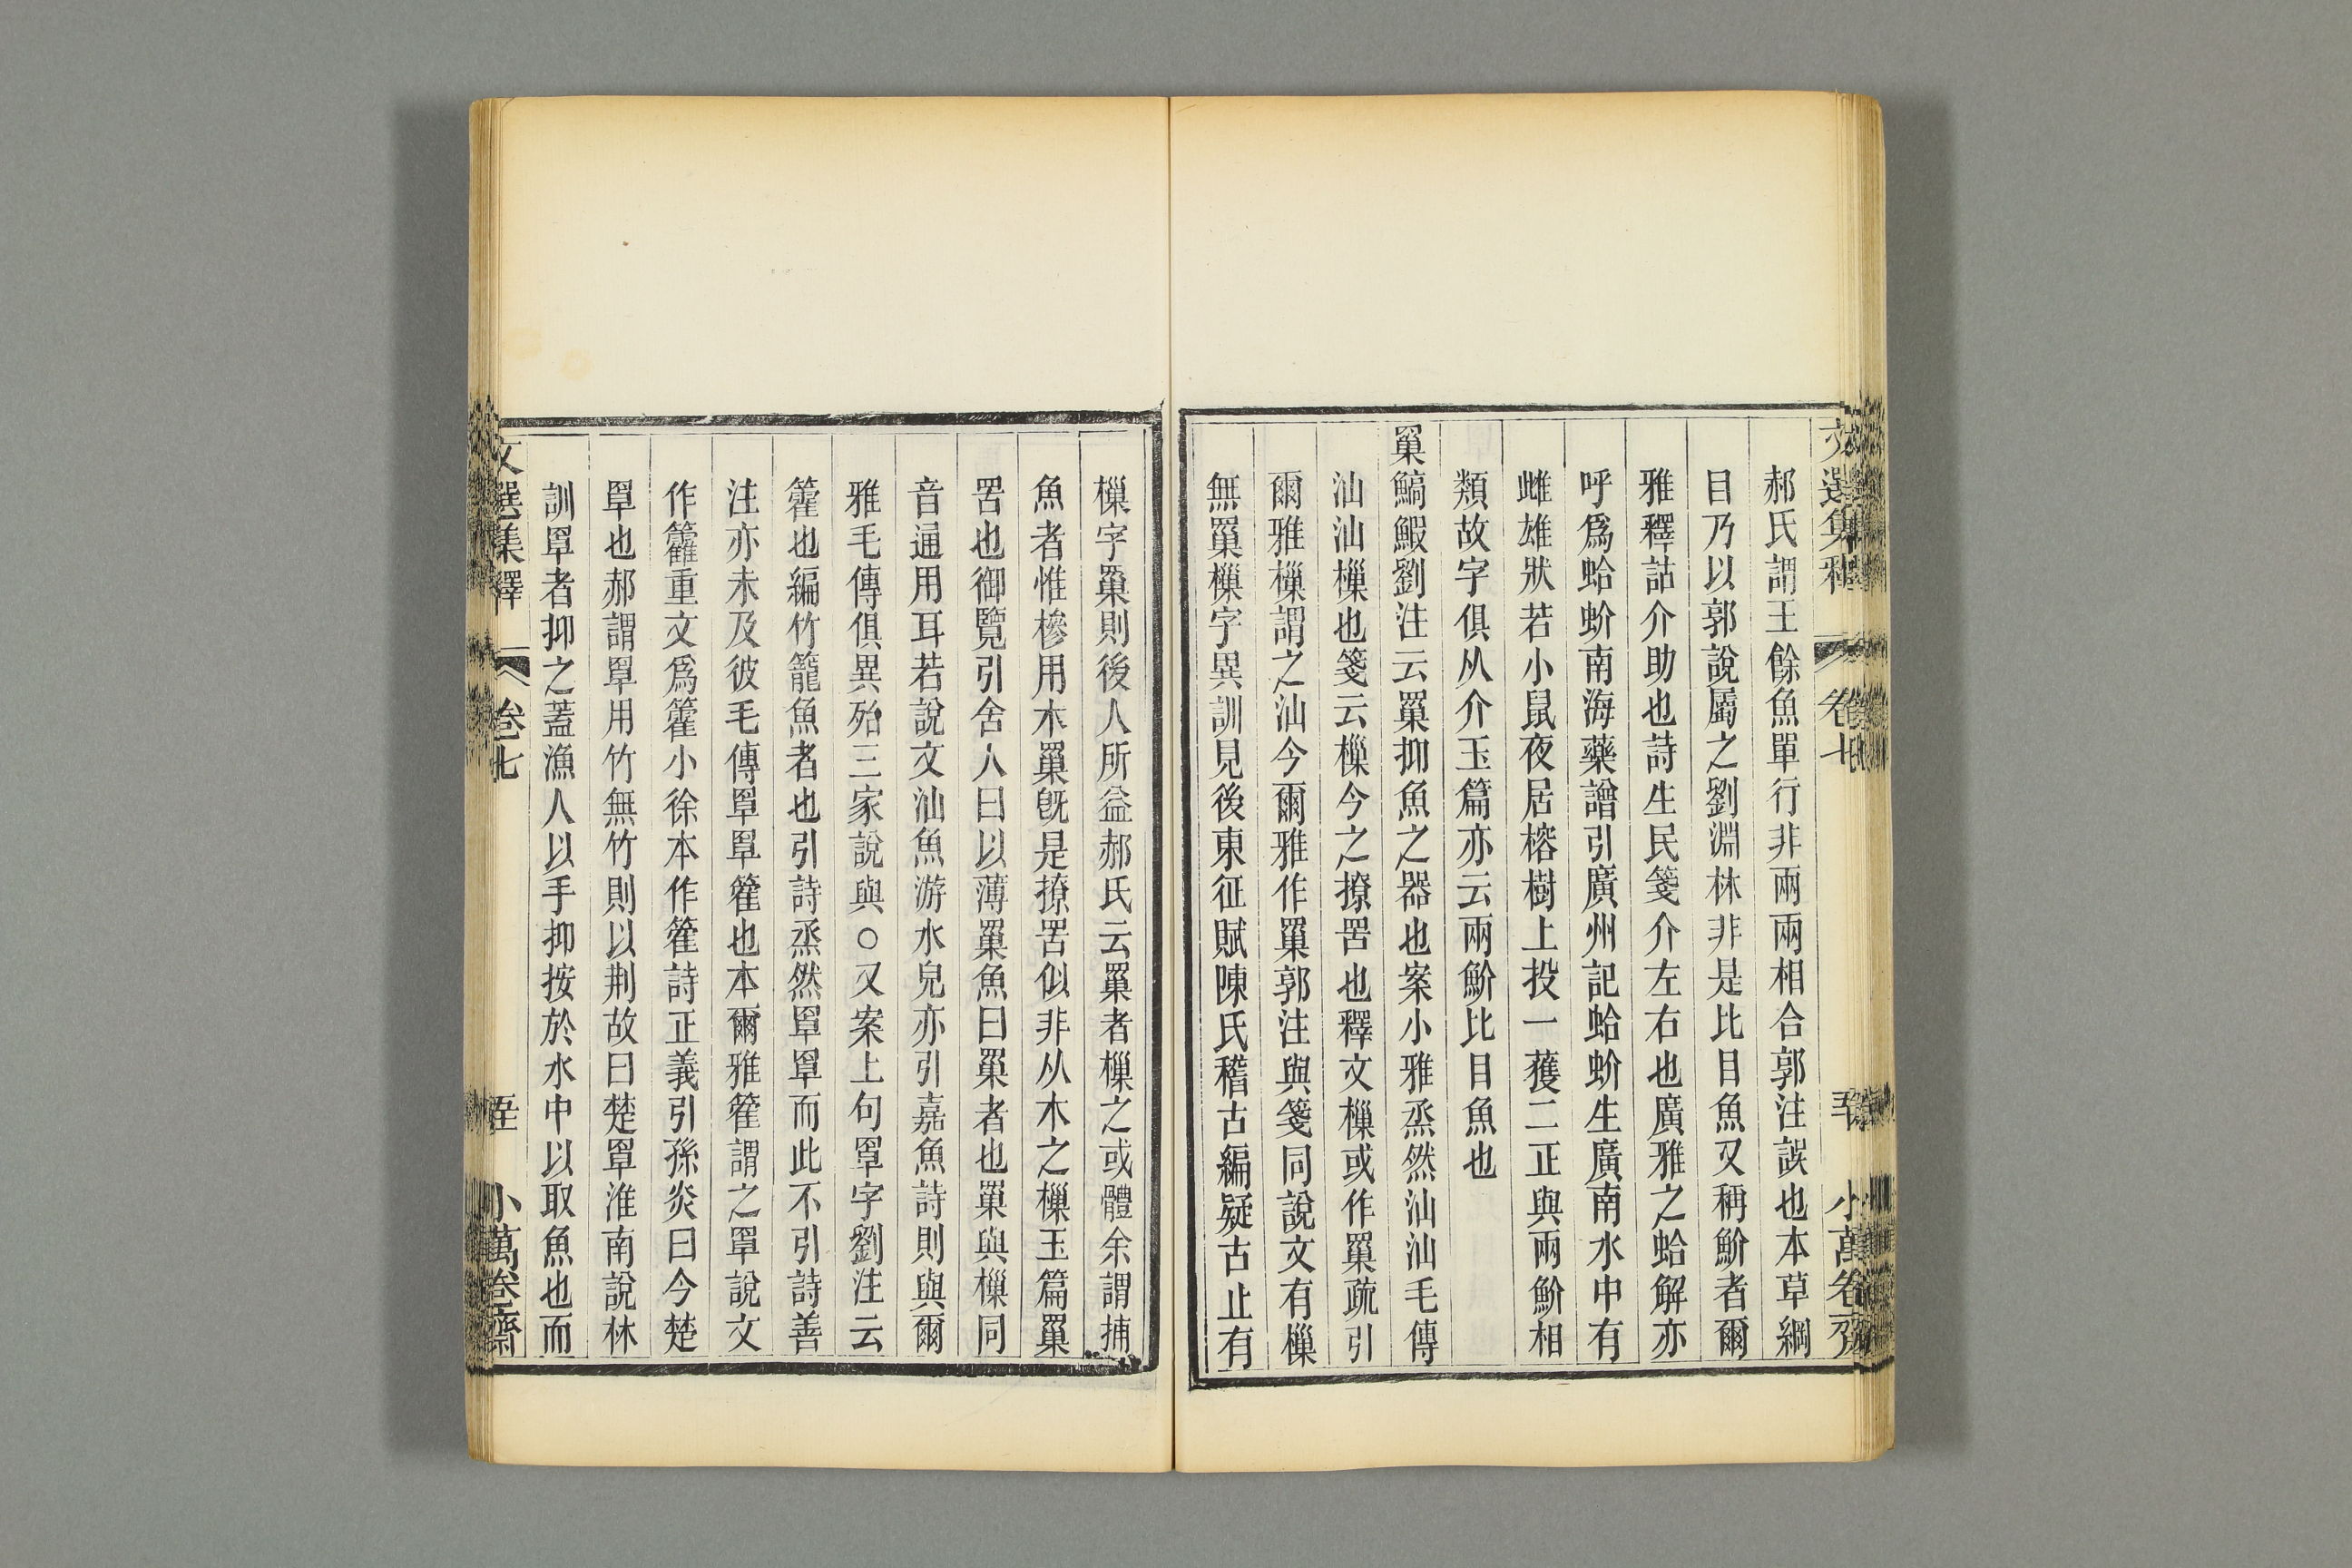 郝氏謂王餘魚單行非兩兩相合郭注誤也本草綱
目乃以郭說屬之劉淵林非是比目魚又稱魪者爾
雅釋詁介助也詩生民箋介左右也廣雅之蛤解亦
呼爲蛤蚧南海藥譜引廣州記蛤蚧生廣南水中有
雌雄狀若小鼠夜居榕樹上投一獲二正與兩魪相
類故字俱从介玉篇亦云兩魪比目魚也
罺鰝鰕劉注云罺抑魚之器也案小雅烝然汕汕毛傳
汕汕樔也箋云樔今之撩罟也釋文樔或作罺疏引
爾雅樔謂之汕今爾雅作罺郭注與箋同說文有樔
無罺樔字異訓見後東征賦陳氏稽古編疑古止有
樔字罺則後人所益郝氏云罺者樔之或體余謂捕
魚者惟槮用木罺旣是撩罟似非从木之樔玉篇罺
罟也御覽引舍人曰以薄罺魚曰罺者也罺與樔同
音通用耳若說文汕魚游水皃亦引嘉魚詩則與爾
雅毛傳俱異殆三家說與○又案上句罩字劉注云
籗也編竹籠魚者也引詩烝然罩罩而此不引詩善
注亦未及彼毛傳罩罩篧也本爾雅篧謂之罩說文
作籱重文爲籗小徐本作篧詩正義引孫炎曰今楚
罩也郝謂罩用竹無竹則以荆故曰楚罩淮南說林
訓罩者抑之蓋漁人以手抑按於水中以取魚也而
文選集釋 卷七 小萬卷齋